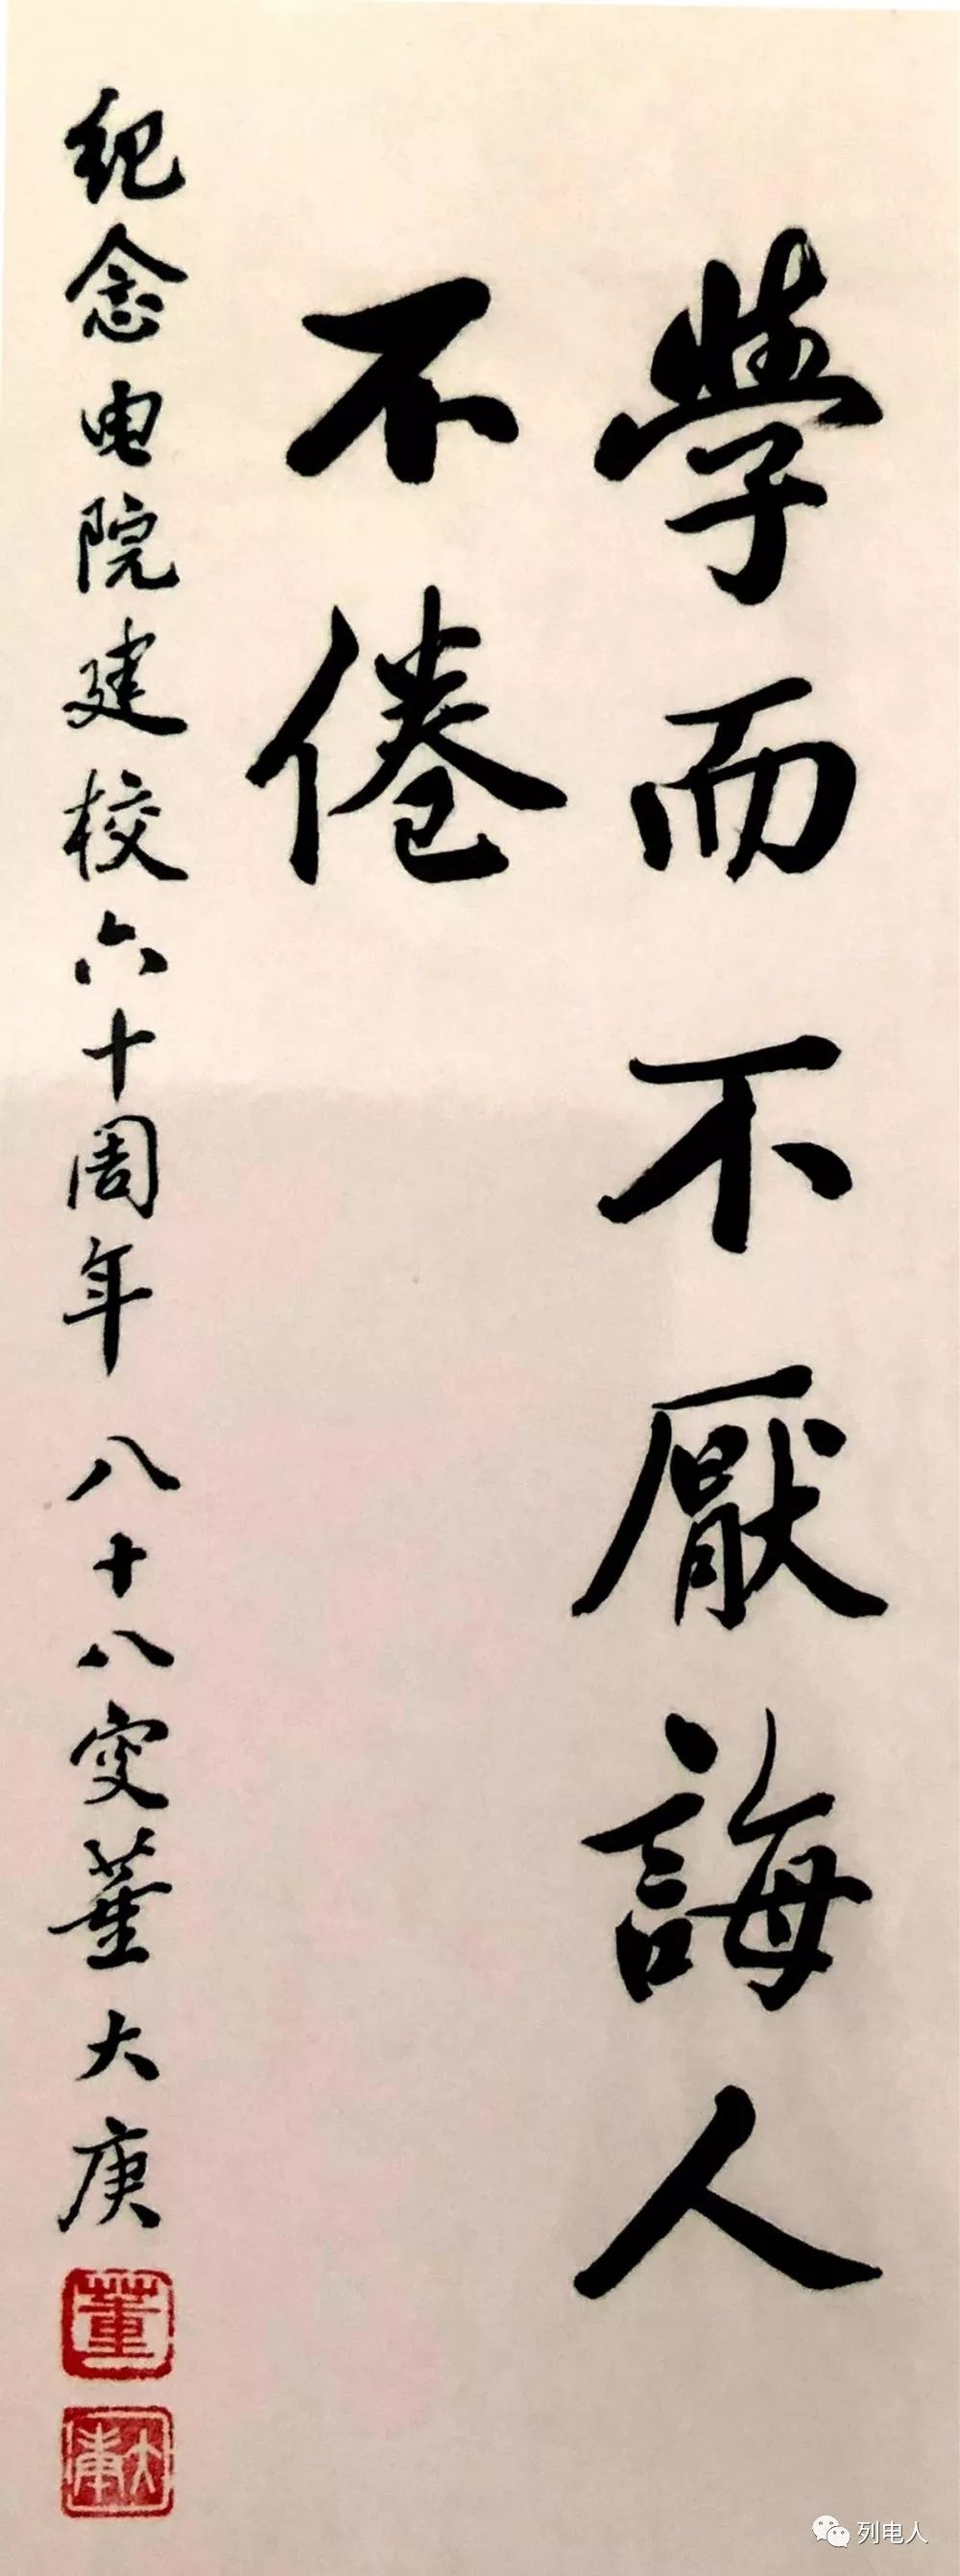 學而不厭誨人
不倦
纪念电院建校六十周年 八十八叟董大庚
董
大庚
列电人